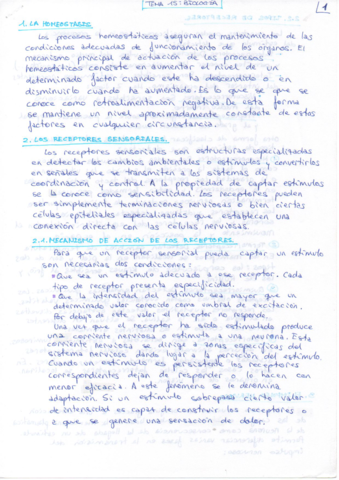 TEMA 15: BIOLOGÍA
1
1. LA HOMEOSTASIS
Los procesos homeostáticos aseguran el mantenimiento de las
condiciones adecuadas de funcionamiento de los órganos. El
mecanismo principal de actuación de los procesos
homeostáticos consiste en aumentar el nivel de un
determinado factor cuando este ha descendido o en
disminuirlo cuando ha aumentado. Es lo que se que se
conoce como retroalimentación negativa. De esta forma
se mantiene un nivel aproximadamente constante de estos
factores en cualquier circunstancia.
2. LOS RECEPTORES SENSORIALES
Los receptores sensoriales son estructuras especializadas
en detectar los cambios ambientales o estímulos y convertirlos
en señales que se transmiten a los sistemas de
coordinación y control. A la propiedad de captar estímulos
se la conoce como sensibilidad. Los receptores pueden
ser simplemente terminaciones nerviosas o bien ciertas
células epiteliales especializadas que establecen una
conexión directa con las células nerviosas.
2.1. MECANISMO DE ACCIÓN DE LOS RECEPTORES
Para que un receptor sensorial pueda captar un estímulo
son necesarias dos condiciones:
• Que sea un estímulo adecuado a ese receptor. Cada
tipo de receptor presenta especificidad.
• Que la intensidad del estímulo sea mayor que un
determinado valor conocido como umbral de excitación.
Por debajo de este valor el receptor no responde.
Una vez que el receptor ha sido estimulado produce
una corriente nerviosa o estímulo a una neurona. Esta
corriente nerviosa se dirige a zonas específicas del
sistema nervioso dando lugar a la percepción del estímulo.
Cuando un estímulo es persistente los receptores
correspondientes dejan de responder o lo hacen con
menor eficacia. A este fenómeno se le denomina
adaptación. Si un estímulo sobrepasa cierto valor
de intensidad es capaz de construir los receptores o
a que se genere una sensación de dolor.